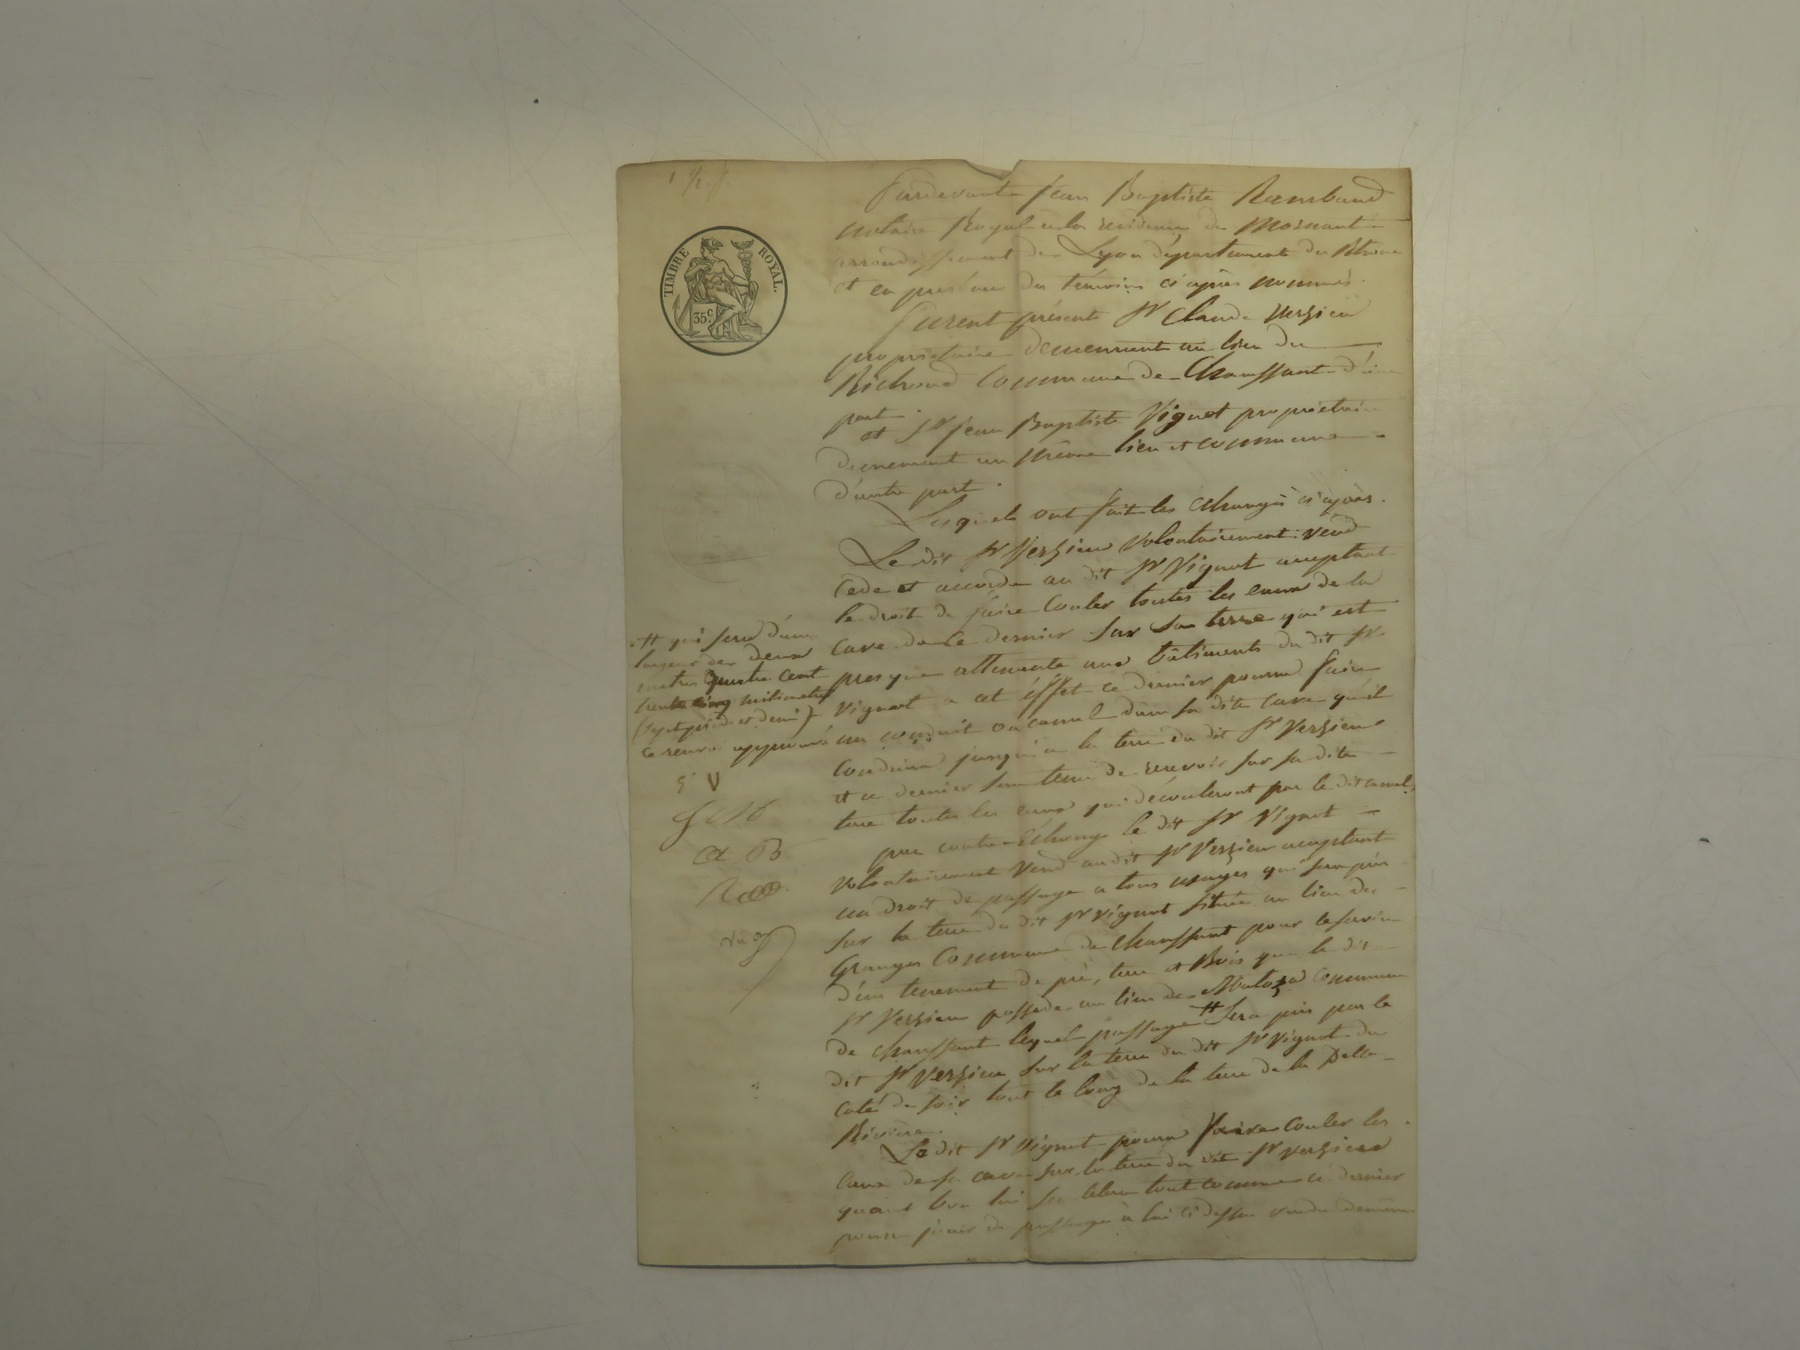 TIMBRE ROYAL.
35c
Pardevant Jean Baptiste Rambaud
notaire Royal à la residence de Mornant
arrondissement de Lyon département du Rhône
et en présence des témoins ci après nommés.
furent présents Sr Claude Verzieu
propriétaire demeurant au lieu du
Richoud Commune de Chaussant d'une
part.
et Sr Jean Baptiste Vignot propriétaire
demeurant au même lieu et commune
d'autre part.
Lesquels ont fait les échanges ci après.
Le dit Sr Verzieu volontairement vend
cède et accorde au dit Sr Vignot acceptant
le droit de faire couler toutes les eaux de la
cave de ce dernier sur sa terre qui est
presque attenante aux bâtiments du dit Sr
Vignot a cet éffet ce dernier pourra faire
un conduit ou canal dans sa dite cave qu'il
conduira jusqu'à la terre du dit Sr Verzieu
et ce dernier sera tenu de recevoir sur sa dite
terre toutes les eaux qui découleront par le dit canal.
par contre-échange le dit Sr Vignot
volontairement vend au dit Sr Verzieu acceptant
un droit de passage a tous usages qui sera pris
sur la terre du dit Sr Vignot située au lieu des
Granges Commune de Chaussant pour le service
d'un tenement de pré, terre et Bois que le dit
Sr Verzieu possede au lieu de commune
de chaussant lequel passage # sera pris par le
dit Sr Verzieu sur la terre du dit Sr Vignot du
coté de soir tout le long de la terre de la Delle
Rivière.
Le dit Sr Vignot pourra faire couler les
eaux de sa cave sur la terre du dit Sr Verzieu
quand bon lui semblera tout comme ce dernier
pourra jouir du passage à lui ci dessus vendu
# qui sera d'une
largeur de deux
metres quatre cent
trente cinq milimetres
(sept pieds et demi)
ce renvoi approuvé